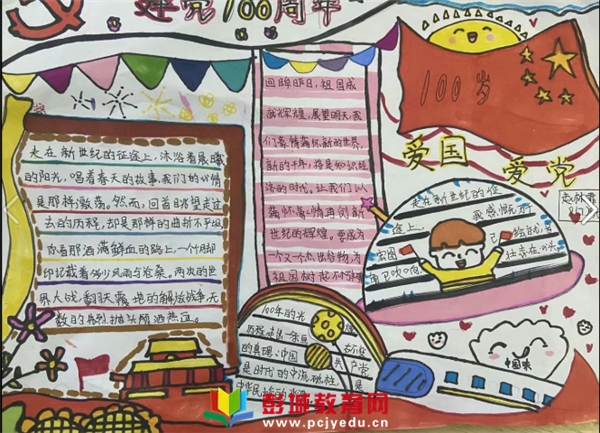 建党100周年
走在新世纪的征途上,沐浴着晨曦
的阳光,唱着春天的故事,我们的心情
是那样激荡。然而,回首眺望走过
去的历程,却是那样的曲折不平坦
你看那洒满鲜血的路上,一个个脚
印记载着多少风雨与沧桑,两次的世
界大战,翻天覆地的解放战争,无
数的先烈抛头颅洒热血。
回眸昨日,祖国成
就辉煌,展望明天,我
们豪情满怀,新的世界,
新的千年,将是知识经
济的时代,让我们以
满怀豪情再创新
世纪的辉煌。要成为
一个又一个杰出人物为
祖国树起不
100岁
爱国
爱党
走在新世纪的征
途上,我感慨万
宏图已绘就,
角已吹响
100年的光
历程
的真理:中国共产党
是时代的中流砥柱,是
中华民族
中国味
彭城教育网
www.pcjyedu.cn